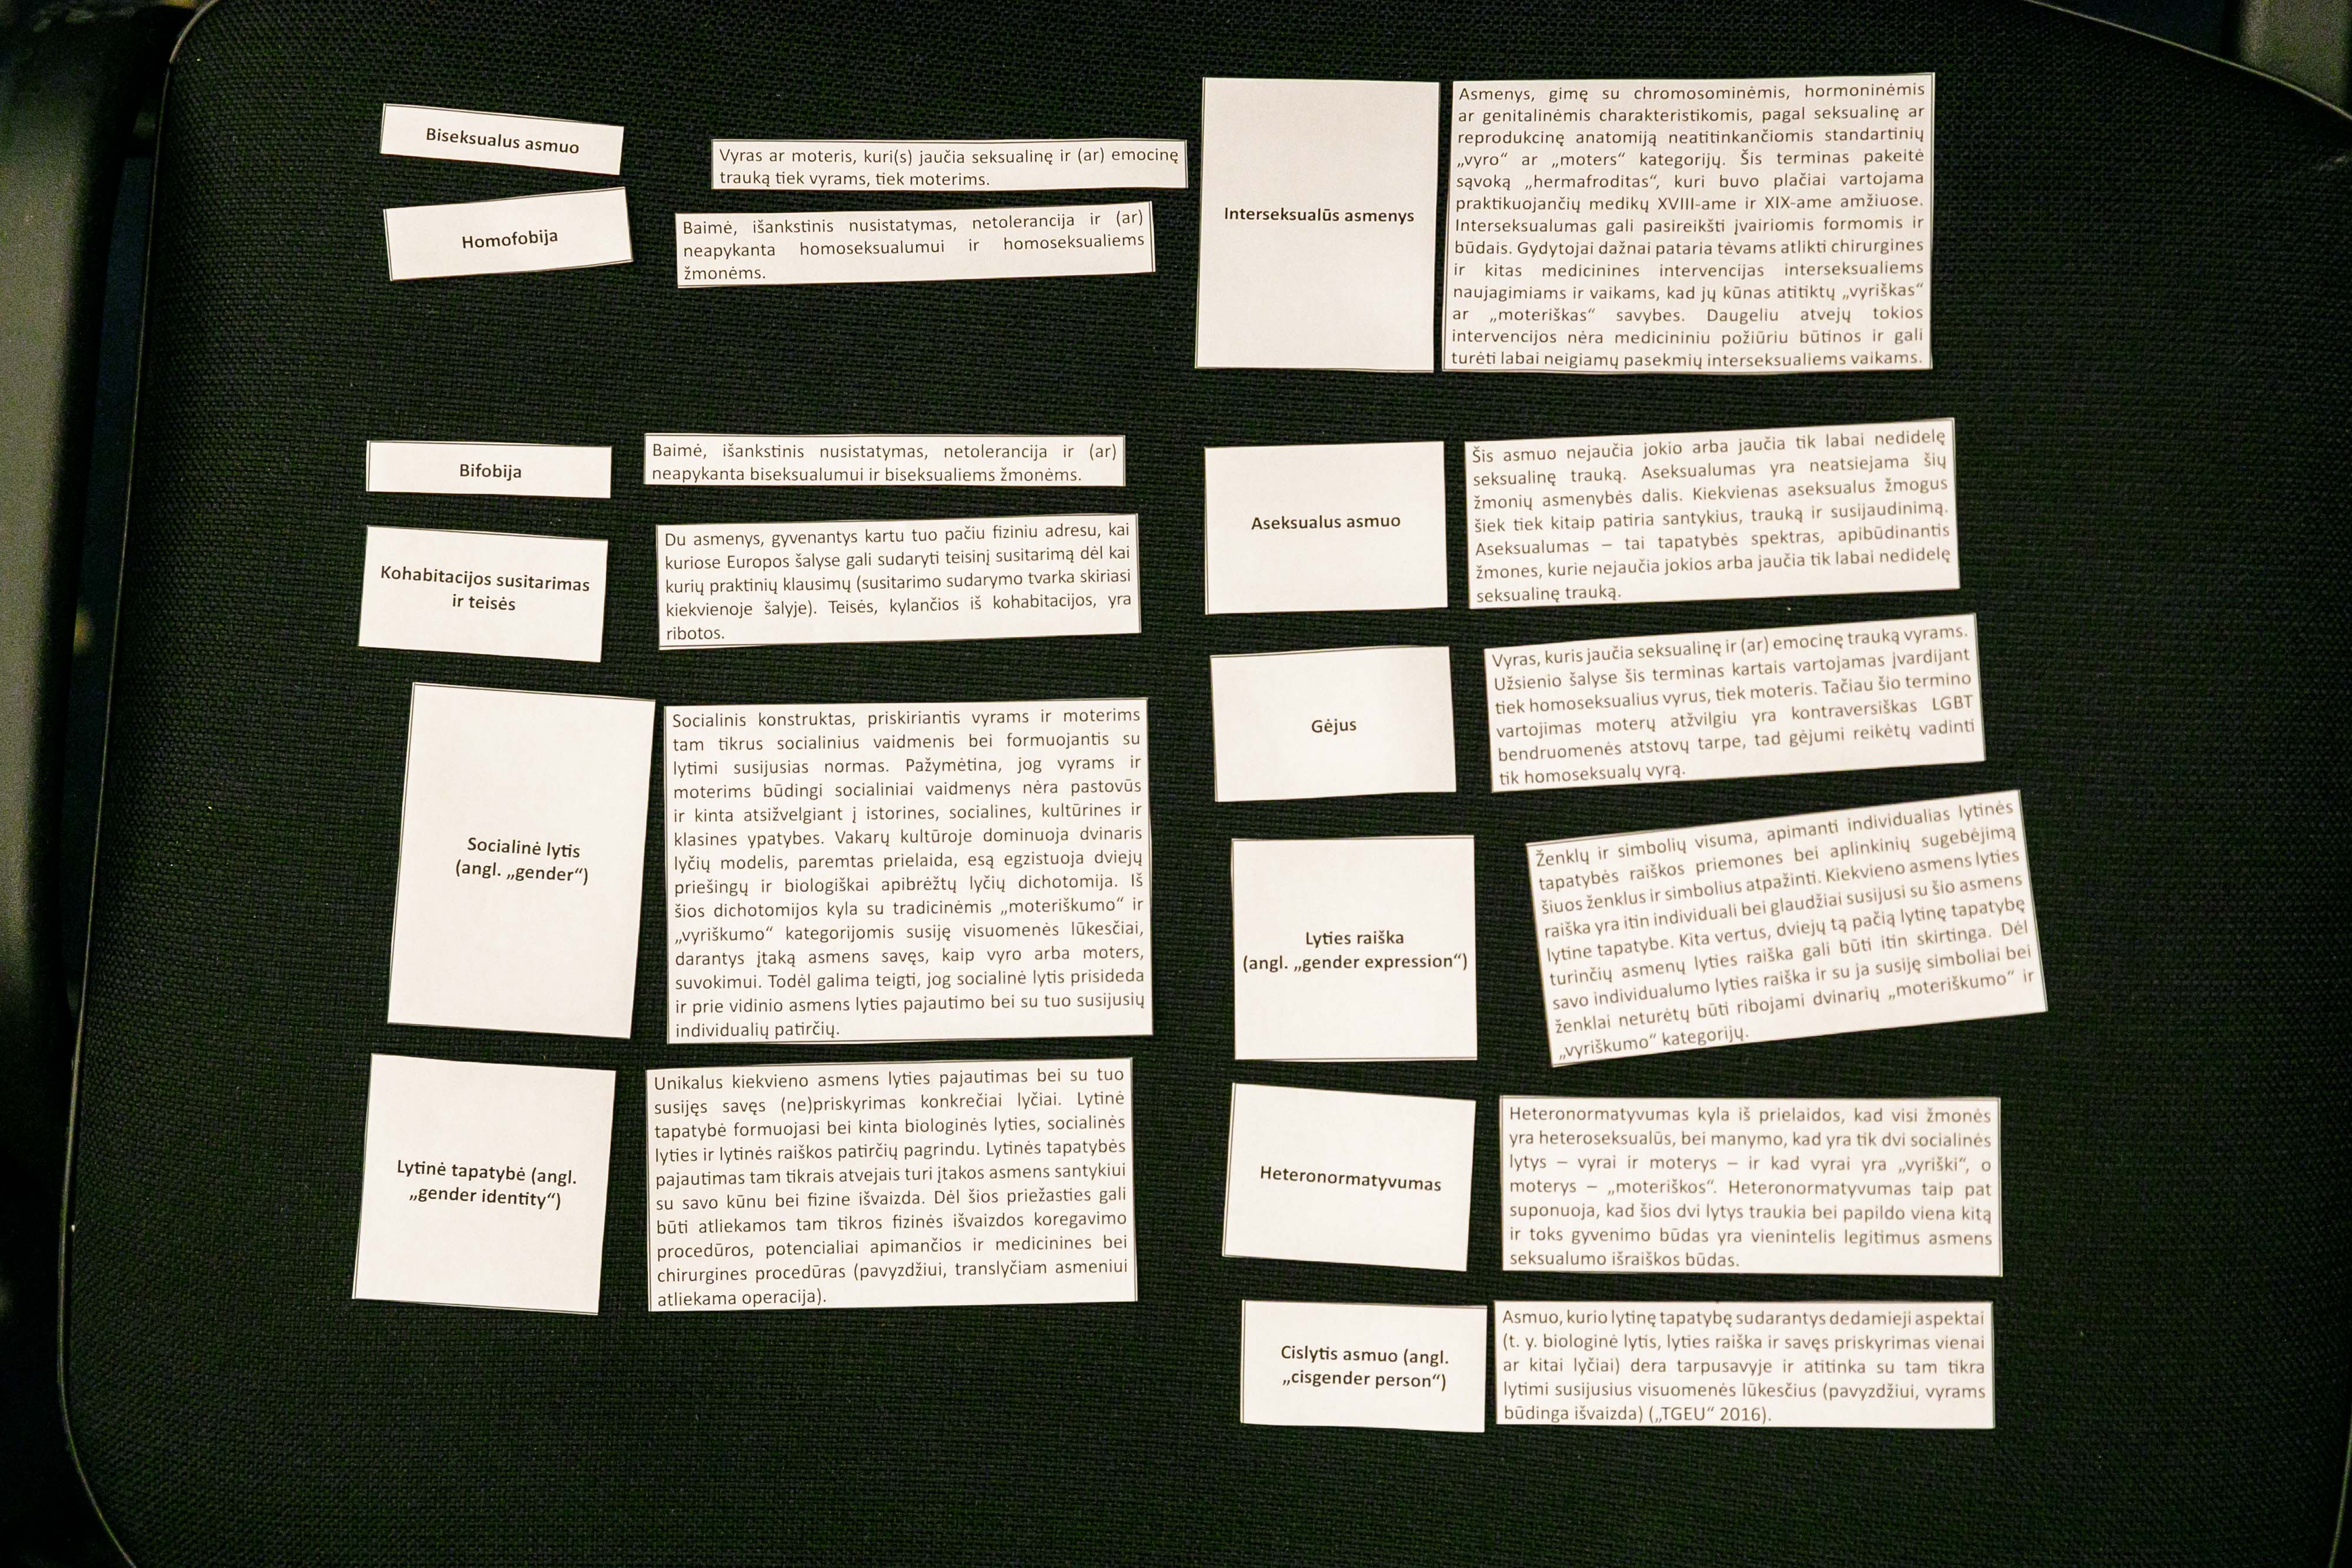 Biseksualus asmuo
Vyras ar moteris, kuri(s) jaučia seksualinę ir (ar) emocinę
trauką tiek vyrams, tiek moterims.
Homofobija
Baimė, išankstinis nusistatymas, netolerancija ir (ar)
neapykanta homoseksualumui ir homoseksualiems
žmonėms.
Bifobija
Baimė, išankstinis nusistatymas, netolerancija ir (ar)
neapykanta biseksualumui ir biseksualiems žmonėms.
Kohabitacijos susitarimas
ir teisės
Du asmenys, gyvenantys kartu tuo pačiu fiziniu adresu, kai
kuriose Europos šalyse gali sudaryti teisinį susitarimą dėl kai
kurių praktinių klausimų (susitarimo sudarymo tvarka skiriasi
kiekvienoje šalyje). Teisės, kylančios iš kohabitacijos, yra
ribotos.
Socialinė lytis
(angl. „gender“)
Socialinis konstruktas, priskiriantis vyrams ir moterims
tam tikrus socialinius vaidmenis bei formuojantis su
lytimi susijusias normas. Pažymėtina, jog vyrams ir
moterims būdingi socialiniai vaidmenys nėra pastovūs
ir kinta atsižvelgiant į istorines, socialines, kultūrines ir
klasines ypatybes. Vakarų kultūroje dominuoja dvinaris
lyčių modelis, paremtas prielaida, esą egzistuoja dviejų
priešingų ir biologiškai apibrėžtų lyčių dichotomija. Iš
šios dichotomijos kyla su tradicinėmis „moteriškumo“ ir
„vyriškumo“ kategorijomis susiję visuomenės lūkesčiai,
darantys įtaką asmens savęs, kaip vyro arba moters,
suvokimui. Todėl galima teigti, jog socialinė lytis prisideda
ir prie vidinio asmens lyties pajautimo bei su tuo susijusių
individualių patirčių.
Lytinė tapatybė (angl.
„gender identity“)
Unikalus kiekvieno asmens lyties pajautimas bei su tuo
susijęs savęs (ne)priskyrimas konkrečiai lyčiai. Lytinė
tapatybė formuojasi bei kinta biologinės lyties, socialinės
lyties ir lytinės raiškos patirčių pagrindu. Lytinės tapatybės
pajautimas tam tikrais atvejais turi įtakos asmens santykiui
su savo kūnu bei fizine išvaizda. Dėl šios priežasties gali
būti atliekamos tam tikros fizinės išvaizdos koregavimo
procedūros, potencialiai apimančios ir medicinines bei
chirurgines procedūras (pavyzdžiui, translyčiam asmeniui
atliekama operacija).
Interseksualūs asmenys
Asmenys, gimę su chromosominėmis, hormoninėmis
ar genitalinėmis charakteristikomis, pagal seksualinę ar
reprodukcinę anatomiją neatitinkančiomis standartinių
„vyro“ ar „moters“ kategorijų. Šis terminas pakeitė
sąvoką „hermafroditas“, kuri buvo plačiai vartojama
praktikuojančių medikų XVIII-ame ir XIX-ame amžiuose.
Interseksualumas gali pasireikšti įvairiomis formomis ir
būdais. Gydytojai dažnai pataria tėvams atlikti chirurgines
ir kitas medicinines intervencijas interseksualiems
naujagimiams ir vaikams, kad jų kūnas atitiktų „vyriškas“
ar „moteriškas“ savybes. Daugeliu atvejų tokios
intervencijos nėra medicininiu požiūriu būtinos ir gali
turėti labai neigiamų pasekmių interseksualiems vaikams.
Aseksualus asmuo
Šis asmuo nejaučia jokio arba jaučia tik labai nedidelę
seksualinę trauką. Aseksualumas yra neatsiejama šių
žmonių asmenybės dalis. Kiekvienas aseksualus žmogus
šiek tiek kitaip patiria santykius, trauką ir susijaudinimą.
Aseksualumas – tai tapatybės spektras, apibūdinantis
žmones, kurie nejaučia jokios arba jaučia tik labai nedidelę
seksualinę trauką.
Gėjus
Vyras, kuris jaučia seksualinę ir (ar) emocinę trauką vyrams.
Užsienio šalyse šis terminas kartais vartojamas įvardijant
tiek homoseksualius vyrus, tiek moteris. Tačiau šio termino
vartojimas moterų atžvilgiu yra kontraversiškas LGBT
bendruomenės atstovų tarpe, tad gėjumi reikėtų vadinti
tik homoseksualų vyrą.
Lyties raiška
(angl. „gender expression“)
Ženklų ir simbolių visuma, apimanti individualias lytinės
tapatybės raiškos priemones bei aplinkinių sugebėjimą
šiuos ženklus ir simbolius atpažinti. Kiekvieno asmens lyties
raiška yra itin individuali bei glaudžiai susijusi su šio asmens
lytine tapatybe. Kita vertus, dviejų tą pačią lytinę tapatybę
turinčių asmenų lyties raiška gali būti itin skirtinga. Dėl
savo individualumo lyties raiška ir su ja susiję simboliai bei
ženklai neturėtų būti ribojami dvinarių „moteriškumo“ ir
„vyriškumo“ kategorijų.
Heteronormatyvumas
Heteronormatyvumas kyla iš prielaidos, kad visi žmonės
yra heteroseksualūs, bei manymo, kad yra tik dvi socialinės
lytys – vyrai ir moterys – ir kad vyrai yra „vyriški“, o
moterys – „moteriškos“. Heteronormatyvumas taip pat
suponuoja, kad šios dvi lytys traukia bei papildo viena kitą
ir toks gyvenimo būdas yra vienintelis legitimus asmens
seksualumo išraiškos būdas.
Cislytis asmuo (angl.
„cisgender person“)
Asmuo, kurio lytinę tapatybę sudarantys dedamieji aspektai
(t. y. biologinė lytis, lyties raiška ir savęs priskyrimas vienai
ar kitai lyčiai) dera tarpusavyje ir atitinka su tam tikra
lytimi susijusius visuomenės lūkesčius (pavyzdžiui, vyrams
būdinga išvaizda) („TGEU“ 2016).